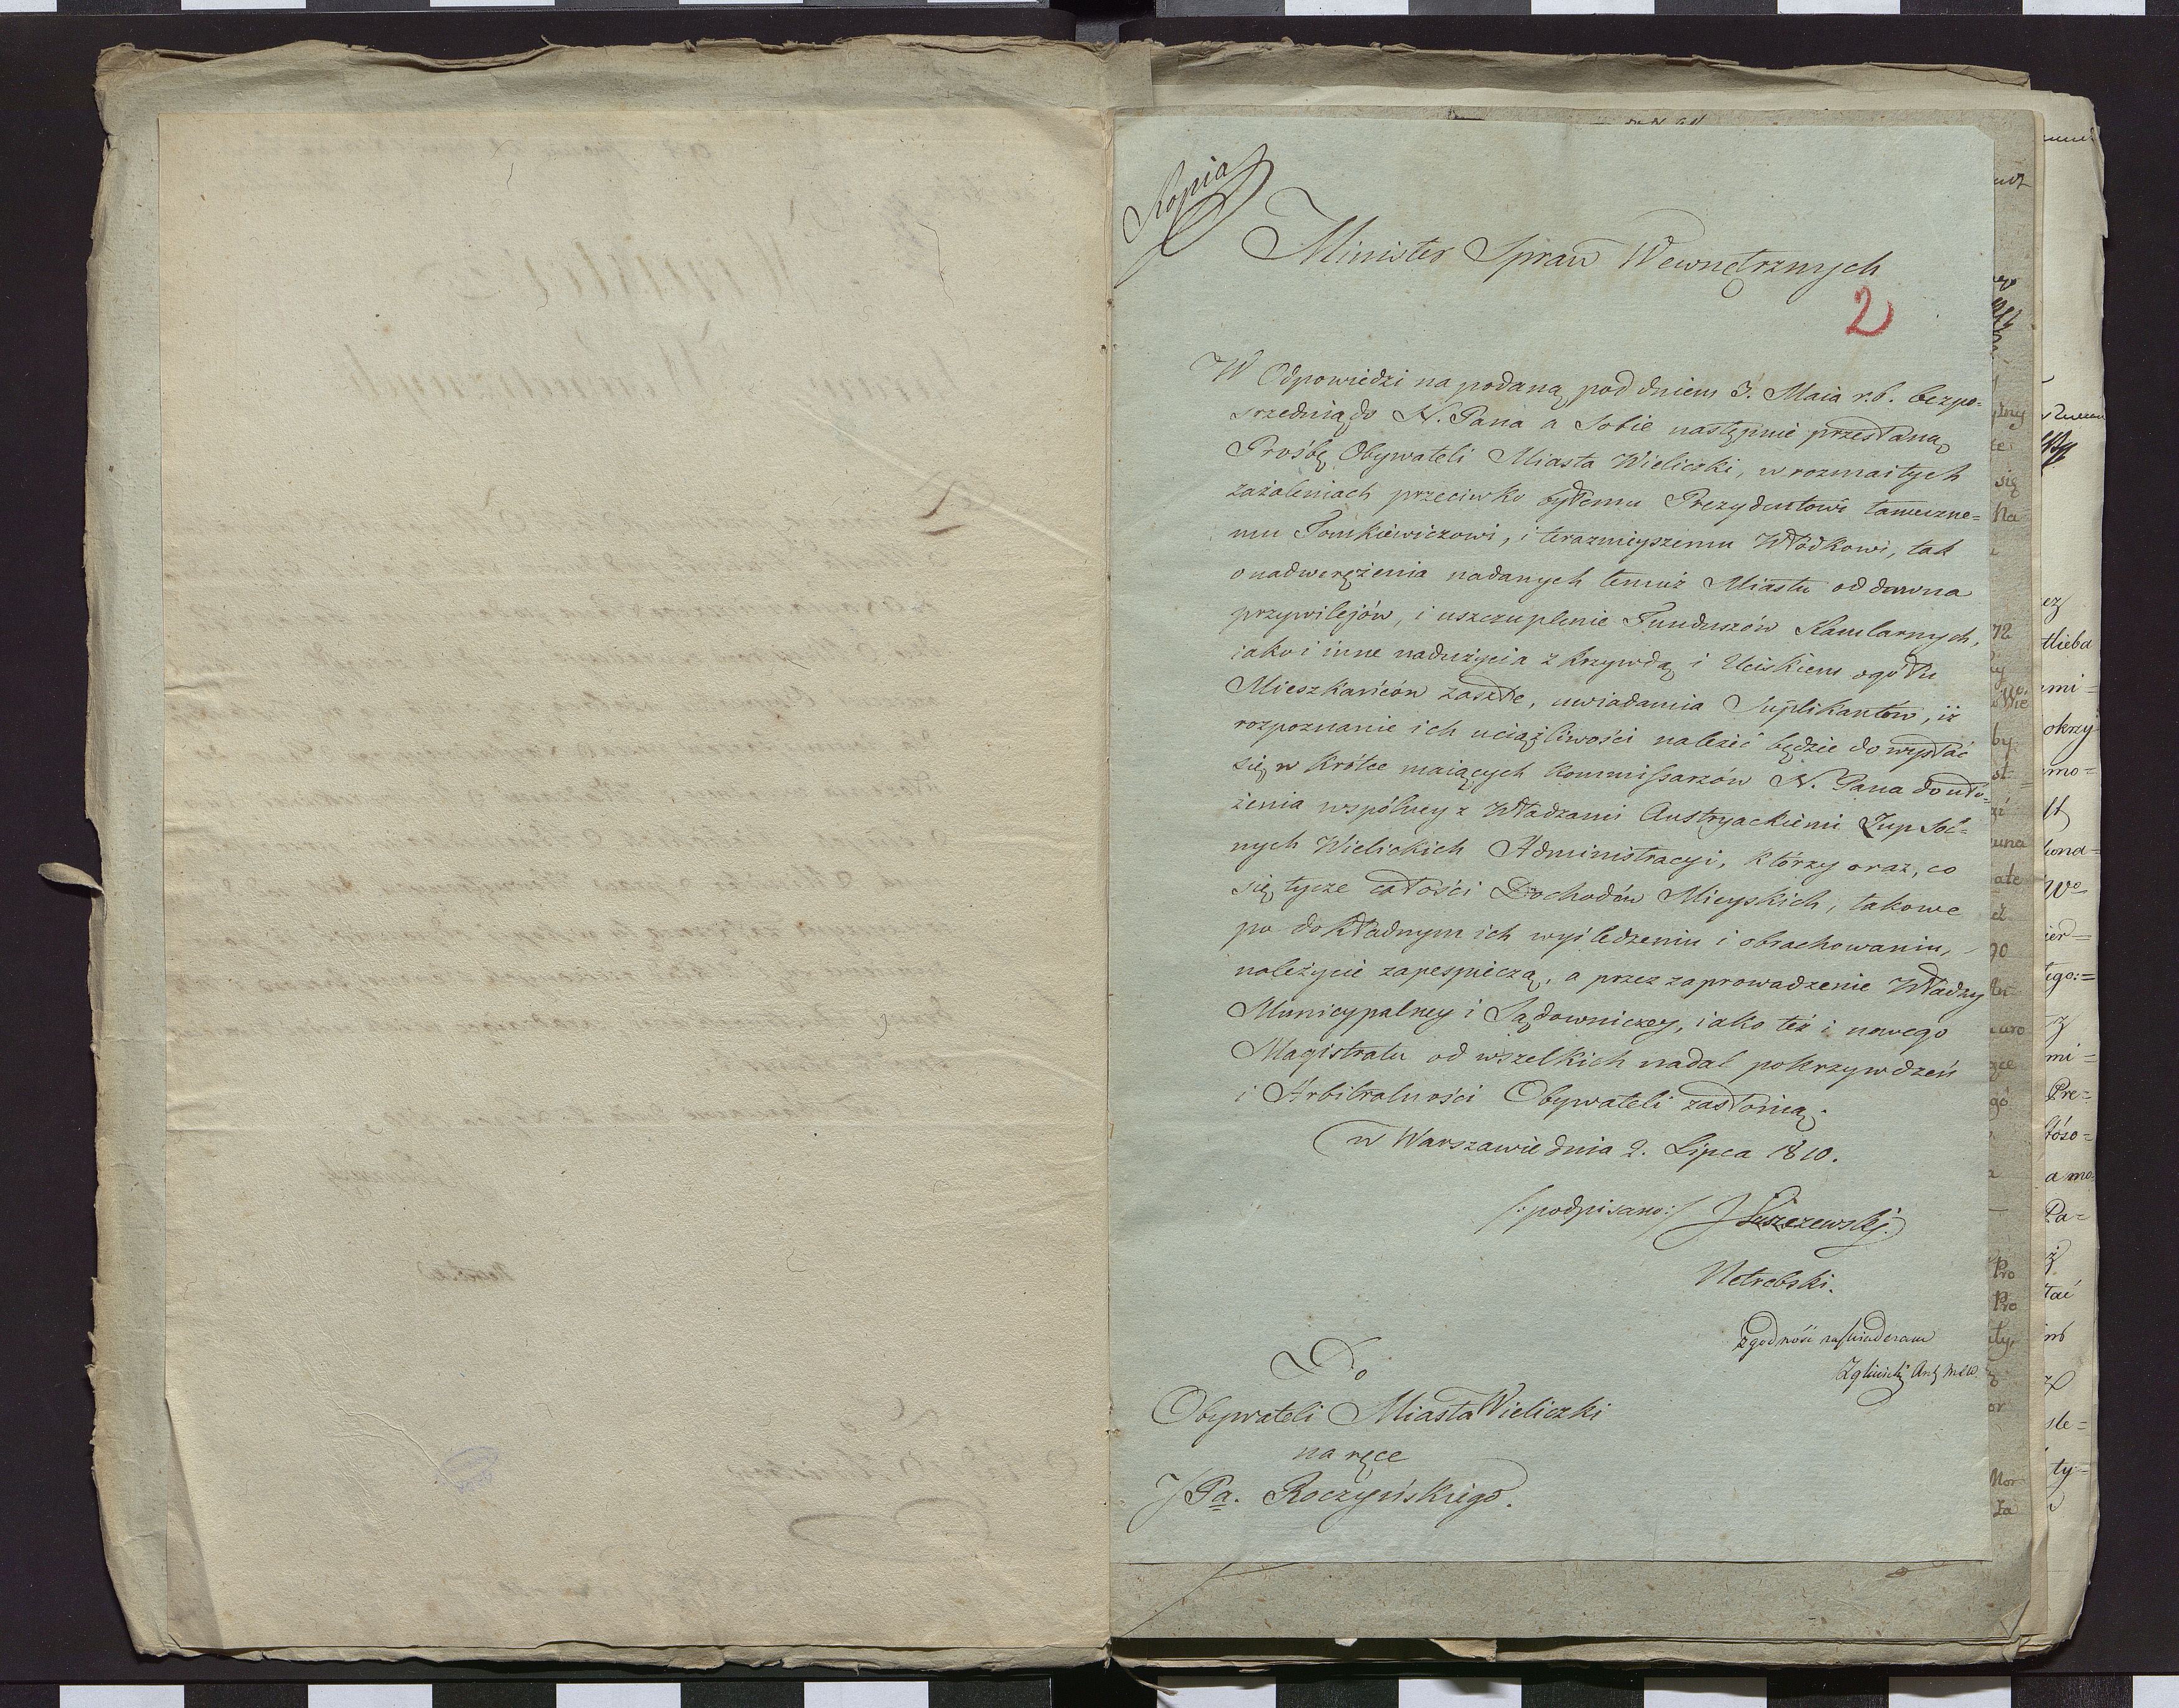 Kopia
Minister Spraw Wewnętrznych
2
W Odpowiedzi na podaną pod dniem 3. Maia r.b. bezpo=
srzednią do N. Pana a Sobie następnie przesłaną
Prośbę Obywateli Miasta Wieliczki, w rozmaitych
zażaleniach przeciwko byłemu Prezydentowi tameczne=
mu Tomkiewiczowi, i terazmieyszemu Włodkowi, tak
o nadweręzenia nadanych temuż Miastu od dawna
przywilejów, i uszczuplenie Funduszów Kamlarnych,
iako i inne nadużycia z krzywdą i Uciskiem ogółu
Mieszkańców zaszłe, uwiadamia Suplikantów, iż
rozpoznanie ich uciążliwości należeć będzie do wysłać
się w krótce maiących Kommissarzów N. Pana do uło=
żenia wspólney z Władzami Austryackiemi Żup Sol=
nych Wielickich Administracyi, którzy oraz, co
się tycze całości Dochodów Mieyskich, takowe
po dokładnym ich wyśledzeniu i obrachowaniu,
należycie zapespieczą, a przez zaprowadzenie Władzy
Municypalney i Sądowniczey, iako też i nowego
Magistratu od wszelkich nadal pokrzywdzeń
i Arbitralności Obywateli zasłonią.
w Warszawie dnia 2. Lipca 1810.
/: podpisano:/ J Łuszczewski.
Netrebski.
Zgodność zaświadczam
Do
Obywateli Miasta Wieliczki
na ręce
J Pa. Roczyńskiego.